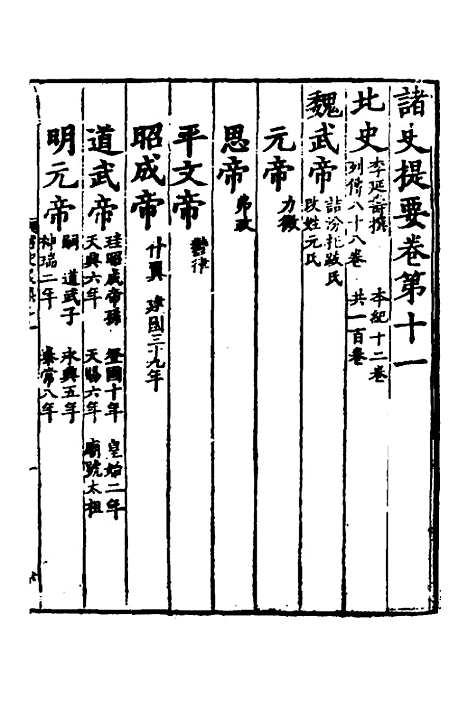 諸史提要卷第十一
北史 李延壽撰 本紀十二卷
列傳八十八卷 共一百卷
魏武帝 詰汾托跋氏
改姓元氏
元帝 力微
思帝 弗政
平文帝 鬱律
昭成帝 什翼 建國三十九年
道武帝 珪昭成帝孫 登國十年 皇始二年
天興六年 天賜六年 廟號太祖
明元帝 嗣 道武子 永興五年
神瑞二年 泰常八年